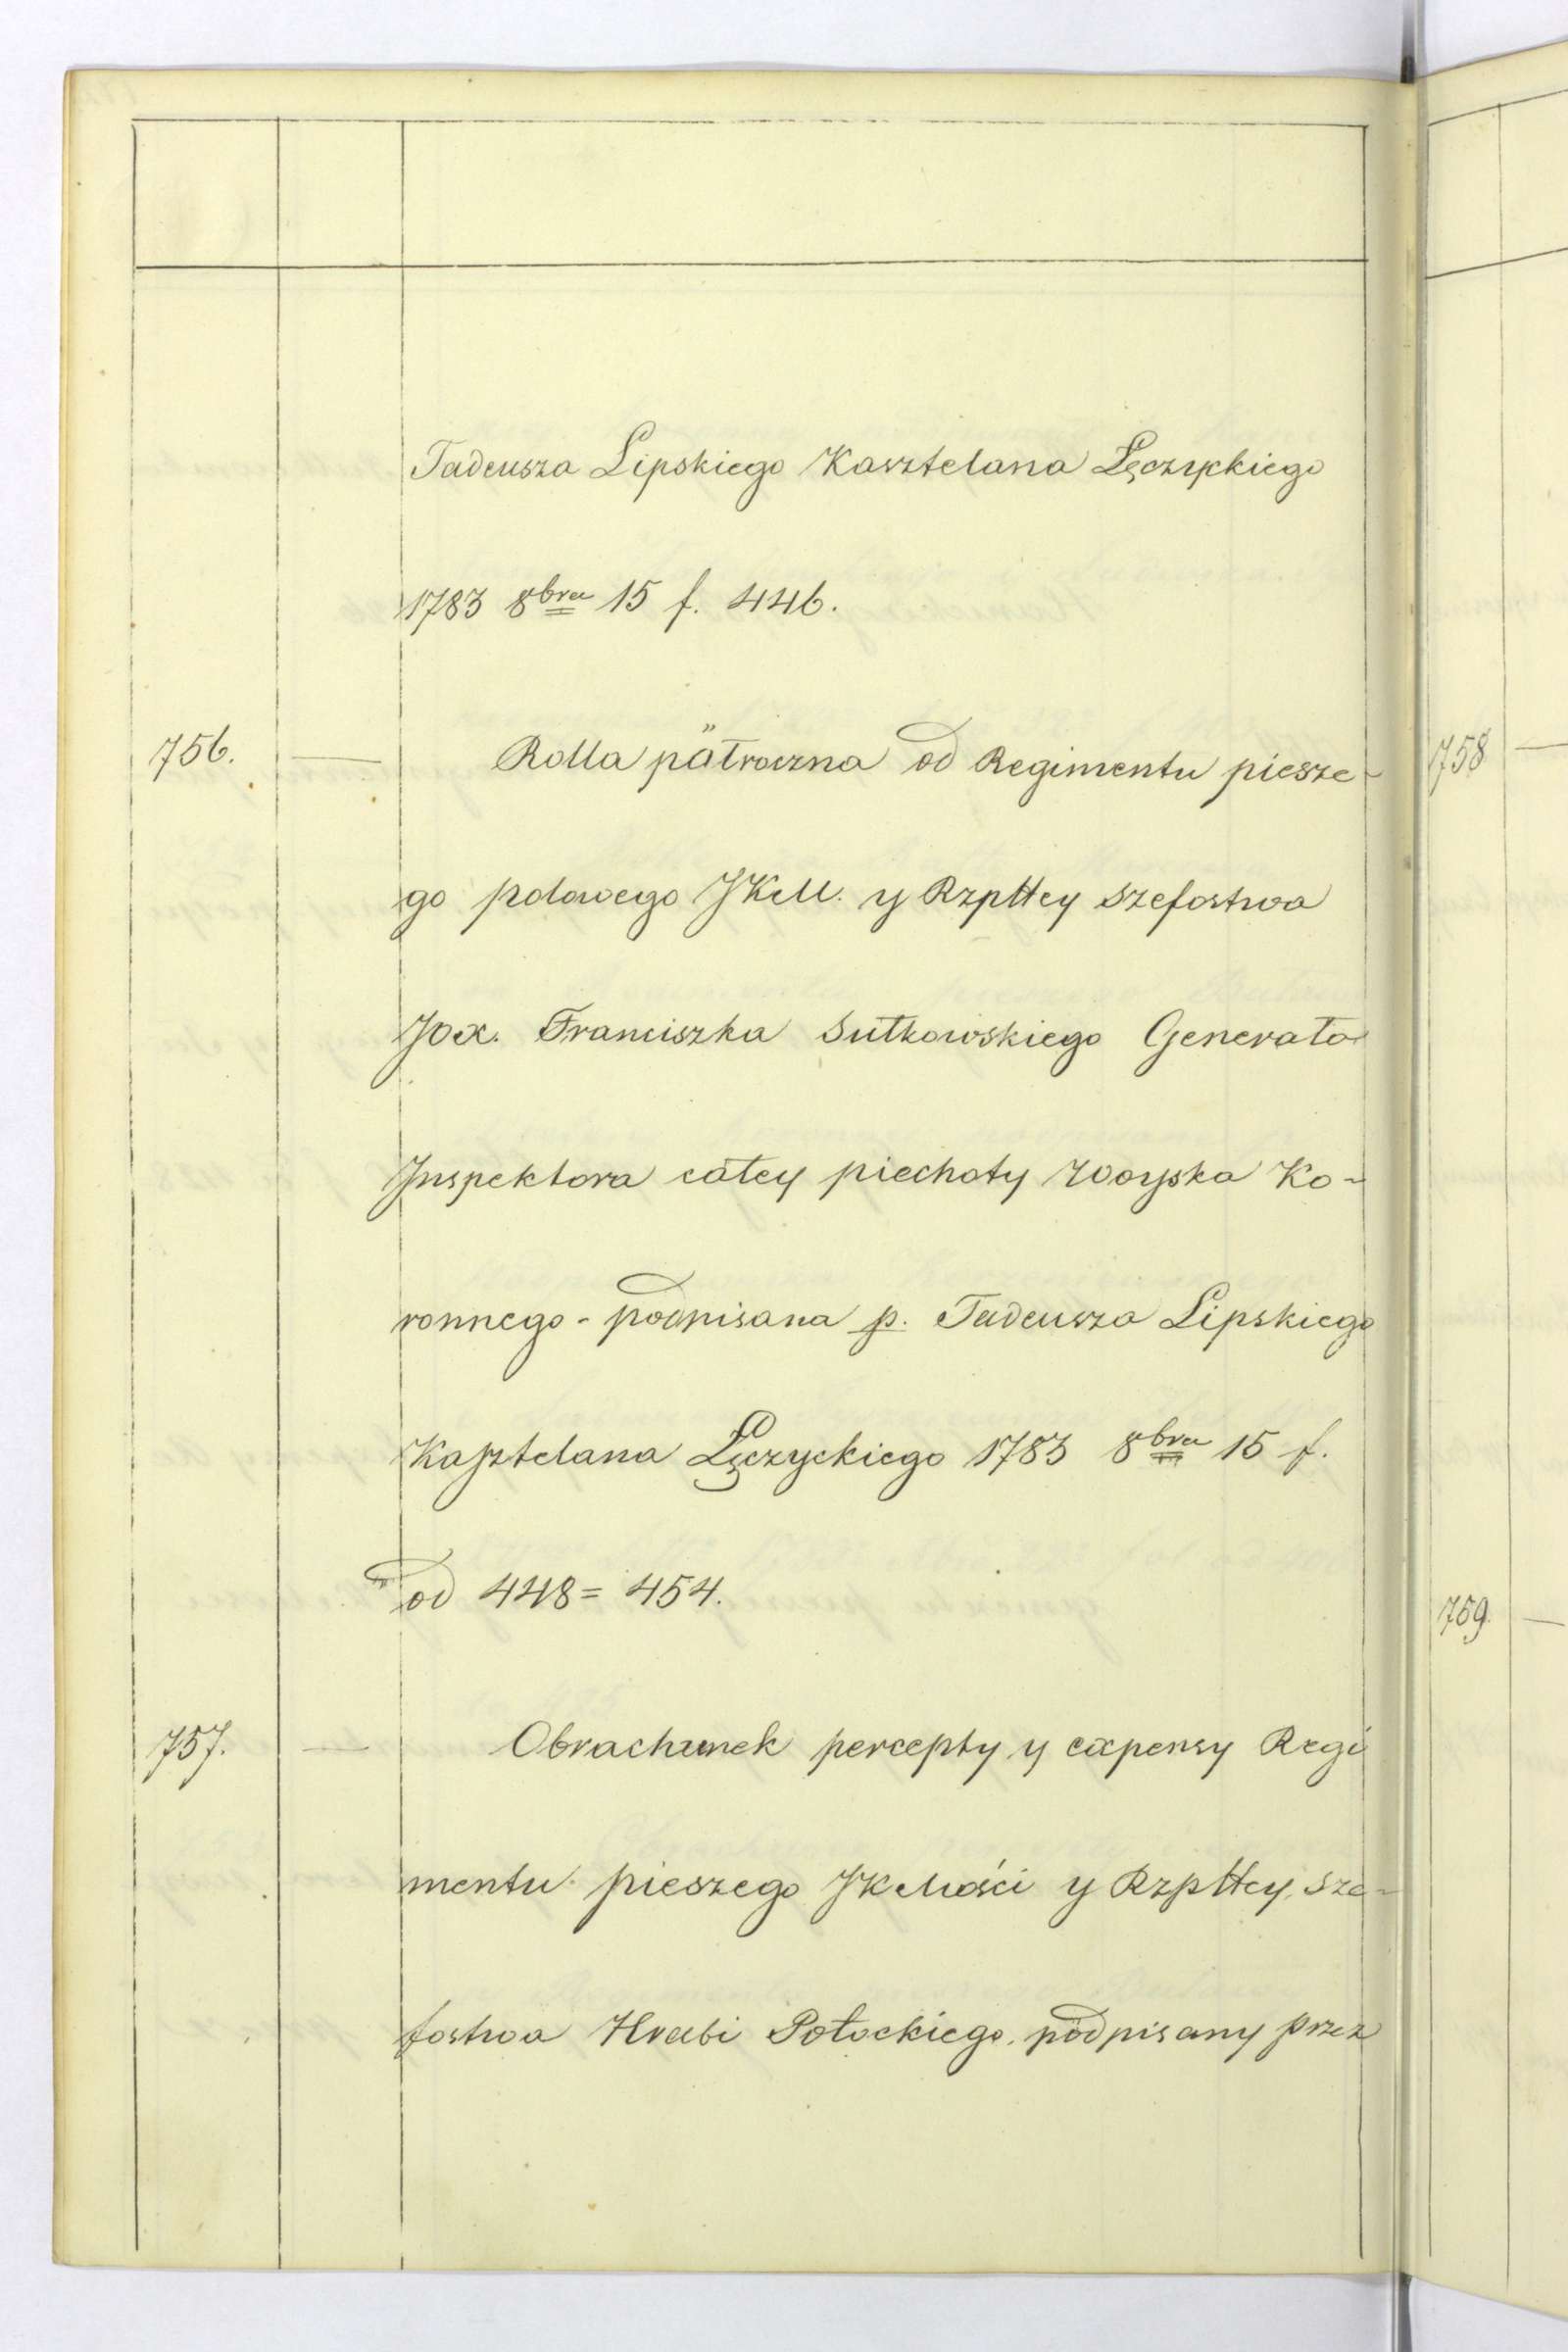 Tadeusza Lipskiego Kasztelana Łęczyckiego
1783 8bra 15 f. 446.
756. — Rolla półroczna od Regimentu piesze-
go polowego JKM. y Rzpttey szefostwa
JOX. Franciszka Sułkowskiego Generała
Inspektora całey piechoty Woyska Ko-
ronnego - podpisana p. Tadeusza Lipskiego
Kasztelana Łęczyckiego 1783 8bra 15 f.
od 448 = 454.
757. — Obrachunek percepty y expensy Regi
mentu pieszego JKMości y Rzpttey, sze-
fostwa Hrabi Potockiego, podpisany przez
758 —
759. —